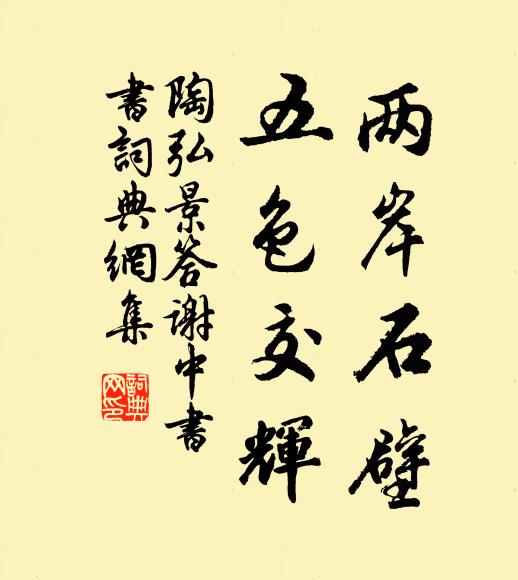 两岸石壁
五色交輝
陶弘景答謝中書
書詞典網集
詞典
网印